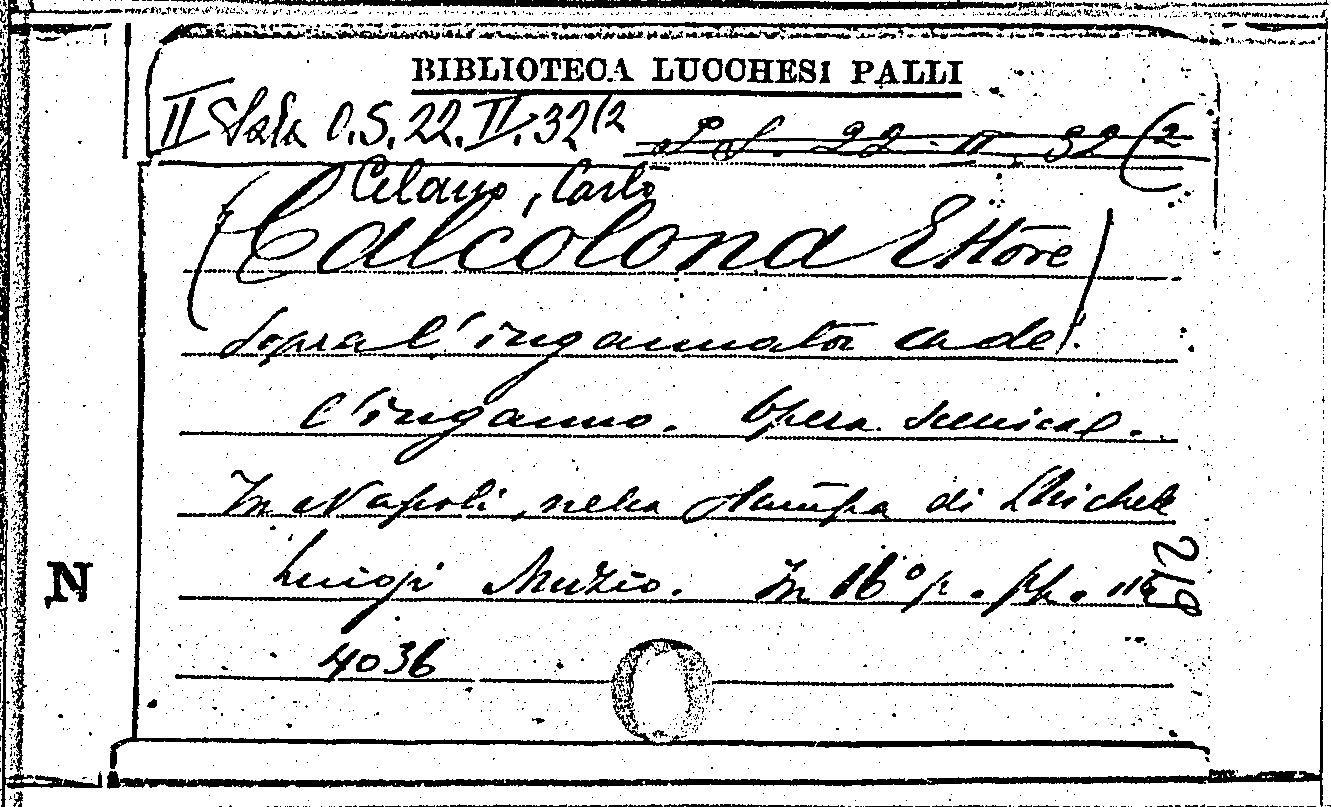 BIBLIOTECA LUCCHESI PALLI
II Sala O.S. 22. II. 32(2
L S. 22. II. 32(2
Celano, Carlo
(Calcolona Ettore)
Sopra l'ingannator cade
l'inganno. Opera scenical.
In Napoli, nella stampa di Michele
Luigi Muzio. In 16° p. pp. 119
219
4036
N